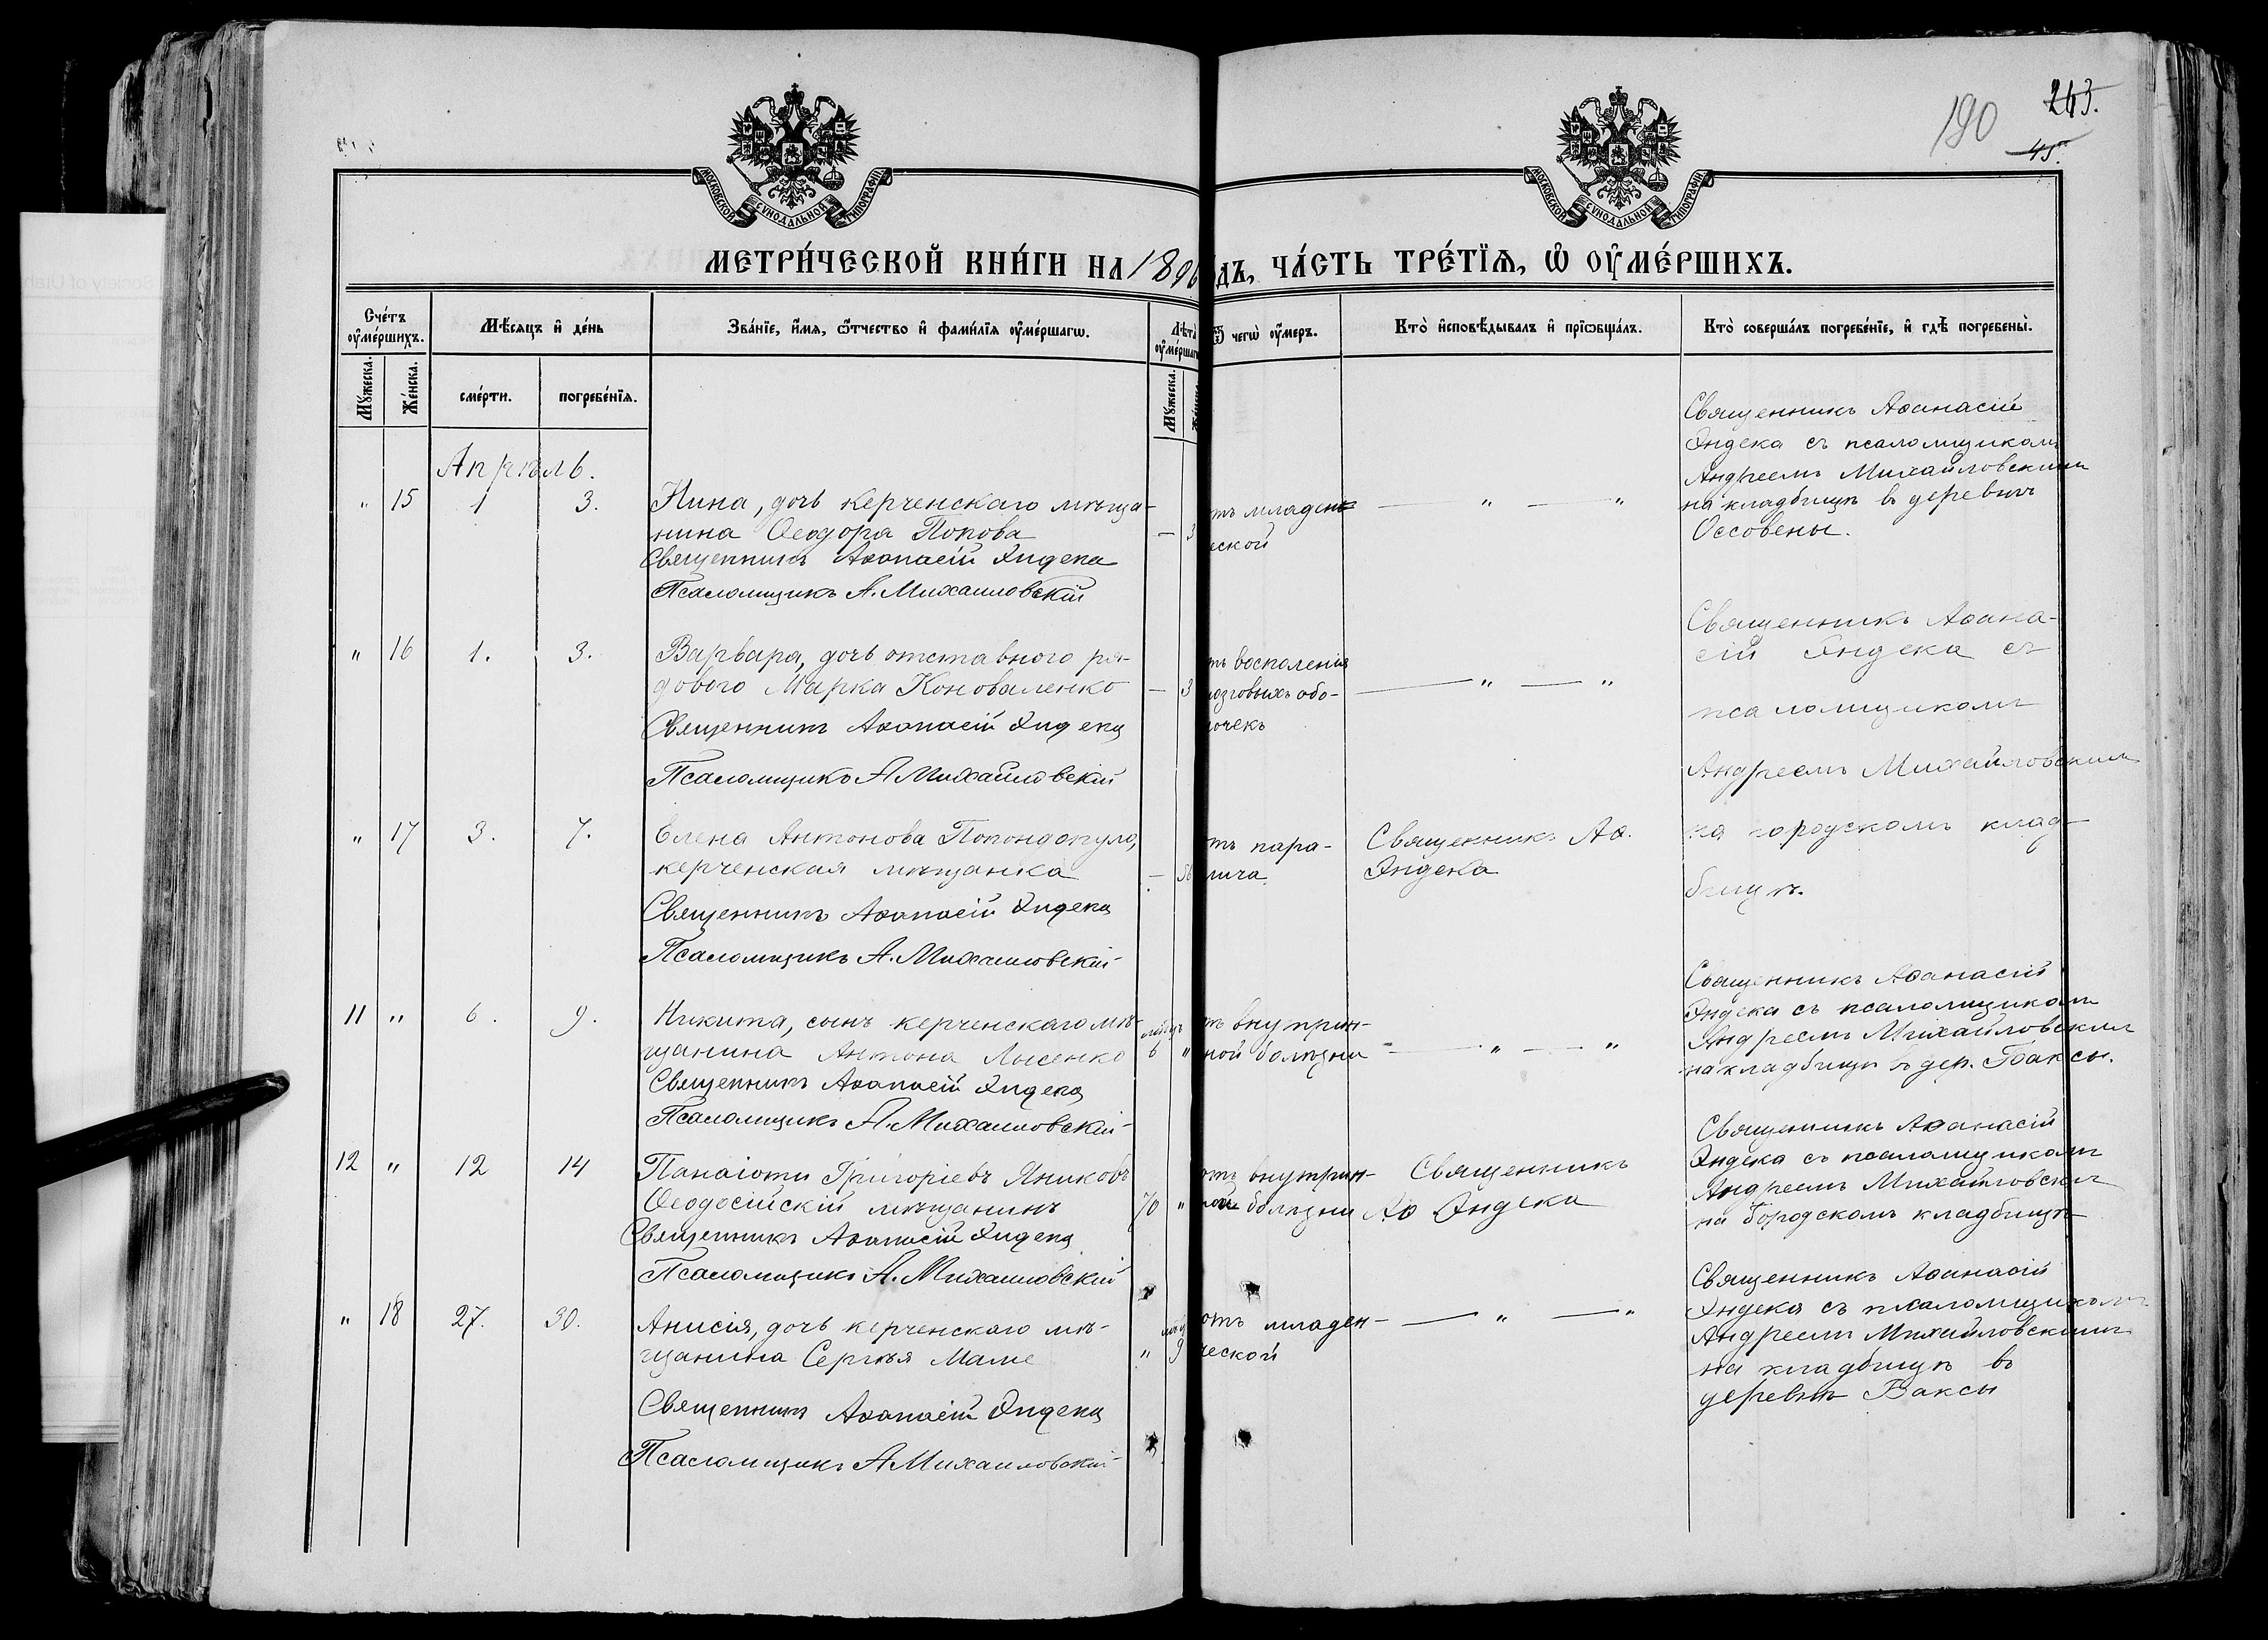 190
243.
45.
МОСКОВСКОЙ СУНОДАЛЬНОЙ ТИПОГРАФІИ
МОСКОВСКОЙ СУНОДАЛЬНОЙ ТИПОГРАФІИ
МЕТРИ́ЧЕСКОЙ КНИ́ГИ НА 1896
ДЪ, ЧА́СТЬ ТРЕ́ТЇѦ, Ѡ҆ ОУ҆МЕ́РШИХЪ.
Сче́тъ оу҆ме́ршихъ.
Мѣ́сѧцъ и҆ де́нь
Зва́нїе, и҆́мѧ, ѻ҆́тчество и҆ фами́лїѧ оу҆ме́ршагѡ.
Лѣта̀ оу҆ме́ршагѡ
Ѿ чегѡ̀ оу҆́меръ.
Кто̀ и҆сповѣ́дывалъ и҆ прїѡбща́лъ.
Кто̀ соверша́лъ погребе́нїе, и҆ гдѣ̀ погребены̀.
Мꙋ́жеска.
Же́нска.
сме́рти.
погребе́нїѧ.
Мꙋ́жеска.
Апрѣль.
" 15 1 3.
Нина, дочь керченскаго мѣща-
нина Ѳеодора Попова
Священникъ Аѳанасій Эндека
Псаломщикъ А. Михайловскій
— 3
тъ младен
еской
— " — "
Священникъ Аѳанасій
Эндека съ псаломщикомъ
Андреемъ Михайловскимъ
на кладбищѣ въ деревнѣ
Оссовены.
" 16 1. 3.
Варвара, дочь отставного ря-
дового Марка Коноваленко
Священникъ Аѳанасій Эндека
Псаломщикъ А Михайловскій
— 3
тъ восполенія
озговыхъ обо-
лочекъ
— " — "
Священникъ Аѳана-
сій Эндека съ
псаломщикомъ
Андреемъ Михайловскимъ
на городскомъ клад-
бищѣ.
" 17 3. 7.
Елена Антонова Попондопуло,
керченская мѣщанка
Священникъ Аѳанасій Эндека
Псаломщикъ А. Михайловскій
— 56
тъ пара-
лича
Священникъ Аѳ.
Эндека
11 " 6. 9.
Никита, сынъ керченскаго мѣ-
щанина Антона Лысенко
Священникъ Аѳанасій Эндека
Псаломщикъ А. Михайловскій
6 "
тъ внутрен-
ной болѣзни
— " — "
Священникъ Аѳанасій
Эндека съ псаломщикомъ
Андреемъ Михайловскимъ
на кладбищѣ въ дер. Баксы.
12 " 12 14
Панаіоти Григоріевъ Яниковъ
Ѳеодосійскій мѣщанинъ
Священникъ Аѳанасій Эндека
Псаломщикъ А. Михайловскій
70 "
отъ внутрен-
ной болѣзни
Священникъ
Аѳ Эндека
Священникъ Аѳанасій
Эндека съ псаломщикомъ
Андреемъ Михайловским
на Городскомъ кладбищѣ
" 18 27. 30.
Анисія, дочь керченскаго мѣ-
щанина Сергѣя Маме
Священникъ Аѳанасій Эндека
Псаломщикъ А Михайловскій
" 9
отъ младен-
ческой
— " — "
Священникъ Аѳанасій
Эндека съ псаломщикомъ
Андреемъ Михайловскимъ
на кладбищѣ въ
деревнѣ Баксы